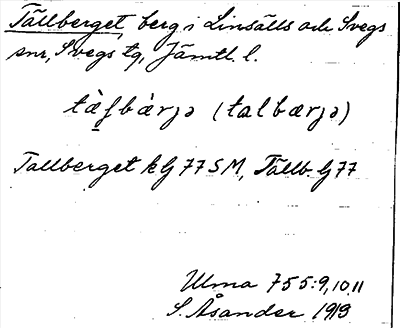 Tällberget, berg i Linsälls och Svegs
snr, Svegs tg, Jämtl. l.
(talbærjə)
Tallberget kg 77 SM, Tällb. G 77
Ulma 755:9,10,11
S. Åsander 1919